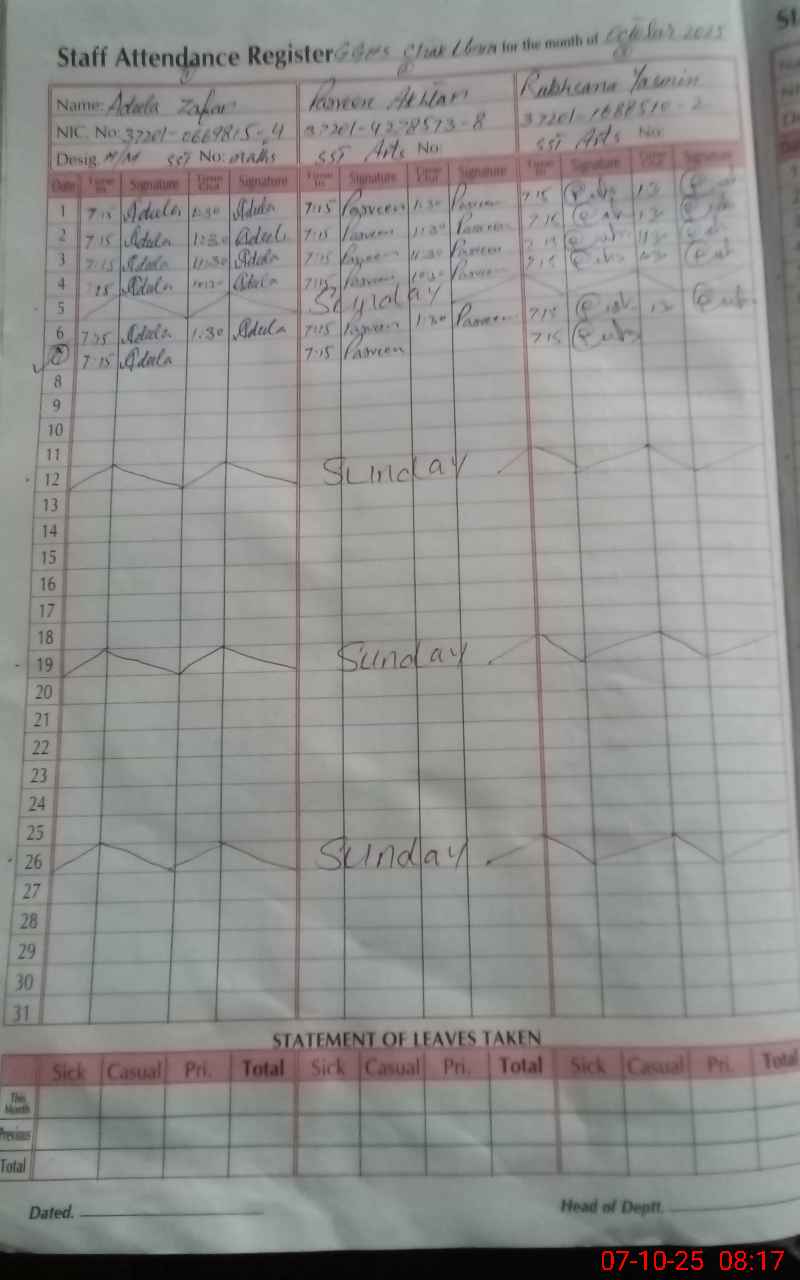 Staff Attendance Register GGHS for the month of October 2025
Name: Adeela Zafar Parveen Akhtar Rukhsana Yasmin
NIC. No: 37201-0669815-4 37201-4278573-8 37201-1688510-2
Desig. SST No: Maths SST Arts No: SST Arts No:
Date Time In Signature Time Out Signature Time In Signature Time Out Signature Time In Signature Time Out Signature
1 7:15 Adeela 1:30 Adeela 7:15 Parveen 1:30 Parveen 7:15
2 7:15 Adeela 1:30 Adeela 7:15 Parveen 1:30 Parveen 7:15
3 7:15 Adeela 11:30 Adeela 7:15 Parveen 11:30 Parveen 7:15
4 7:15 Adeela Adeela 7:15 Parveen Parveen 7:15
5 Sunday
6 7:15 Adeela 1:30 Adeela 7:15 Parveen 1:30 Parveen 7:15
7 7:15 Adeela 7:15 Parveen 7:15
8
9
10
11
12 Sunday
13
14
15
16
17
18
19 Sunday
20
21
22
23
24
25
26 Sunday
27
28
29
30
31
STATEMENT OF LEAVES TAKEN
Sick Casual Pri. Total Sick Casual Pri. Total Sick Casual Pri. Total
This Month
Previous
Total
Dated. Head of Deptt.
07-10-25 08:17